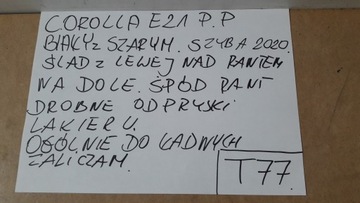 COROLLA E21 P.P
BIAŁY Z SZARYM. SZYBA 2020.
ŚLAD Z LEWEJ NAD RANTEM
NA DOLE. SPÓD RANT
DROBNE ODPRYSKI
LAKIERU.
OGÓLNIE DO ŁADNYCH
ZALICZAM.
T77.